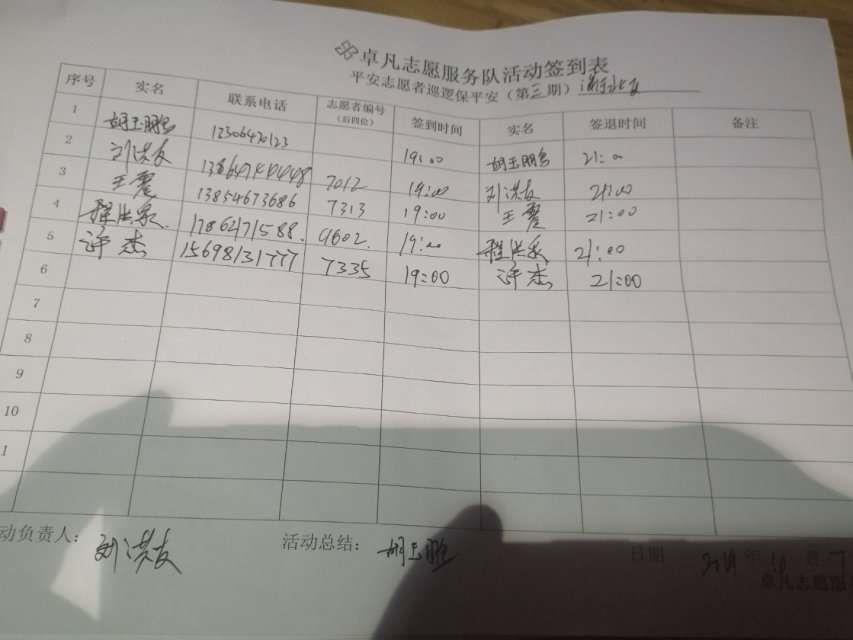 卓凡志愿服务队活动签到表
平安志愿者巡逻保平安（第三期）
序号 实名 联系电话 志愿者编号（后四位） 签到时间 实名 签退时间 备注
1 胡玉鹏 12306420123 19:00 胡玉鹏 21:00
2 刘洪友 7012 19:00 刘洪友 21:00
3 王震 13854673686 7313 19:00 王震 21:00
4 程洪泉 17862471588. 9602. 19:00 程洪泉 21:00
5 许杰 15698131777 7335 19:00 许杰 21:00
6
7
8
9
10
1
动负责人：刘洪友 活动总结： 日期 年 月
卓凡志愿